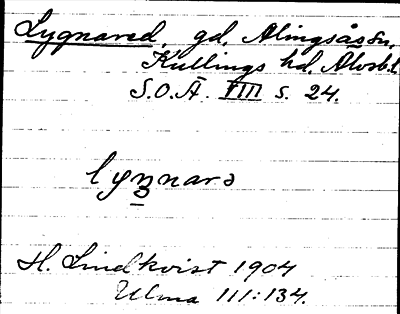 Lygnared, gd. Alingsås sn.
Kullings hd. Älvsb.l.
S.O.Ä. VIII s. 24.
lyŋnarə
H. Lindkvist 1904
Ulma 111:134.